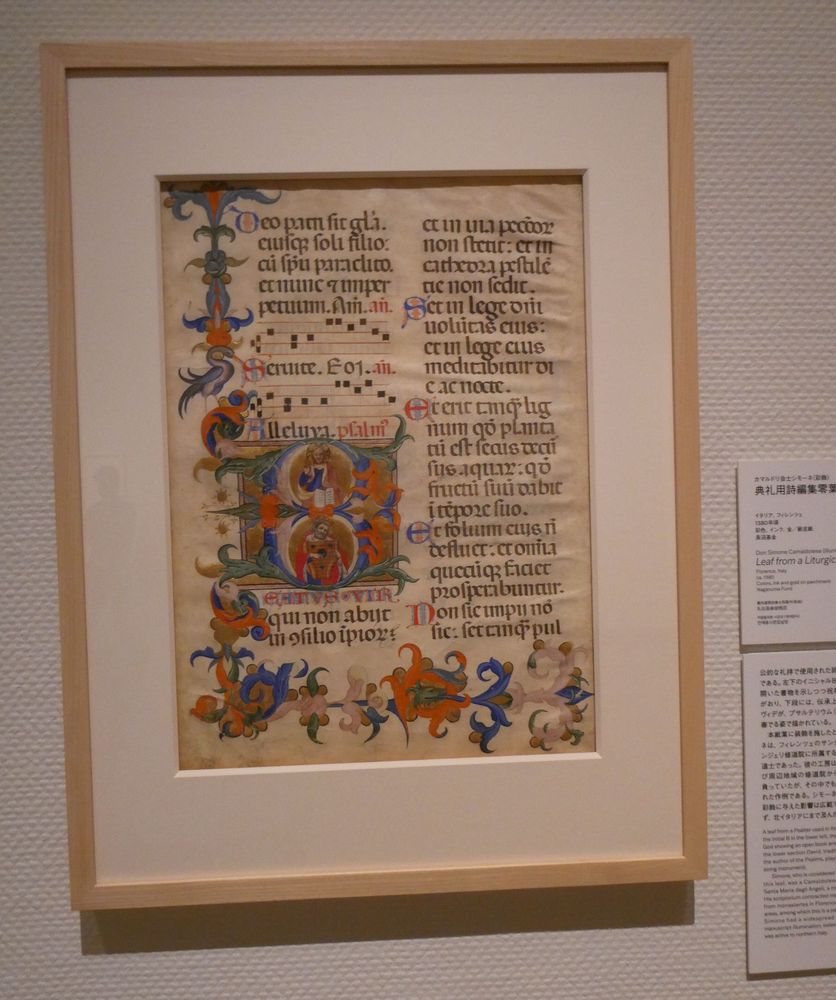 Deo patri sit gl̄a.
eiusq̄ soli filio:
cū sp̄u paraclito.
et nunc ⁊ imper
petuum. Am̄. an̄.
Seruite. E o ꝛ. an̄.
Alleluya. psalm⁹
EATVS VIR
qui non abijt
in ꝯsilio īpioꝝ:
et in uia peccōꝝ
non stetit: et in
cathedra pestilē
tie non sedit.
Set in lege dn̄i
uolūtas eius:
et in lege eius
meditabitur di
e ac nocte.
Et erit tanq̄ lig
num qd̄ planta
tū est secus decū
sus aquaꝝ: qd̄
fructū suū dabit
ī tēpore suo.
Et folium eius nō
defluet: et omīa
quecūqꝫ faciet
prosperabuntur.
Non sic impij nō
sic: set tanq̄ pul
カマルドリ会士シモーネ(彩飾)
典礼用詩編集零葉
イタリア、フィレンツェ
1380年頃
彩色、インク、金／獣皮紙
長沼基金
Don Simone Camaldolese
Leaf from a Liturgic
Florence, Italy
ca. 1380
Colors, ink and gold on parchment
Naganuma Fund
公的な礼拝で使用された
である。左下のイニシャル
開いた書物を示しつつ祝
がおり、下段には、伝承上
ヴィデが、プサルテリウム
奏でる姿で描かれている。
本紙葉に装飾を施した
ネは、フィレンツェのサン
ンジェリ修道院に所属する
道士であった。彼の工房は
び周辺地域の修道院か
負っていたが、その中でも
れた作例である。シモーネ
彩飾に与えた影響は広範
ず、北イタリアにまで及んだ
A leaf from a Psalter used
the initial B in the lower left,
God showing an open book
the lower section David,
the author of the Psalms,
string instrument.
Simone, who is considered
this leaf, was a Camaldolese
Santa Maria degli Angeli, a
His scriptorium contracted
from monasteries in Florence
areas, among which this is a
Simone had a widespread
manuscript illumination,
was active to northern Italy.